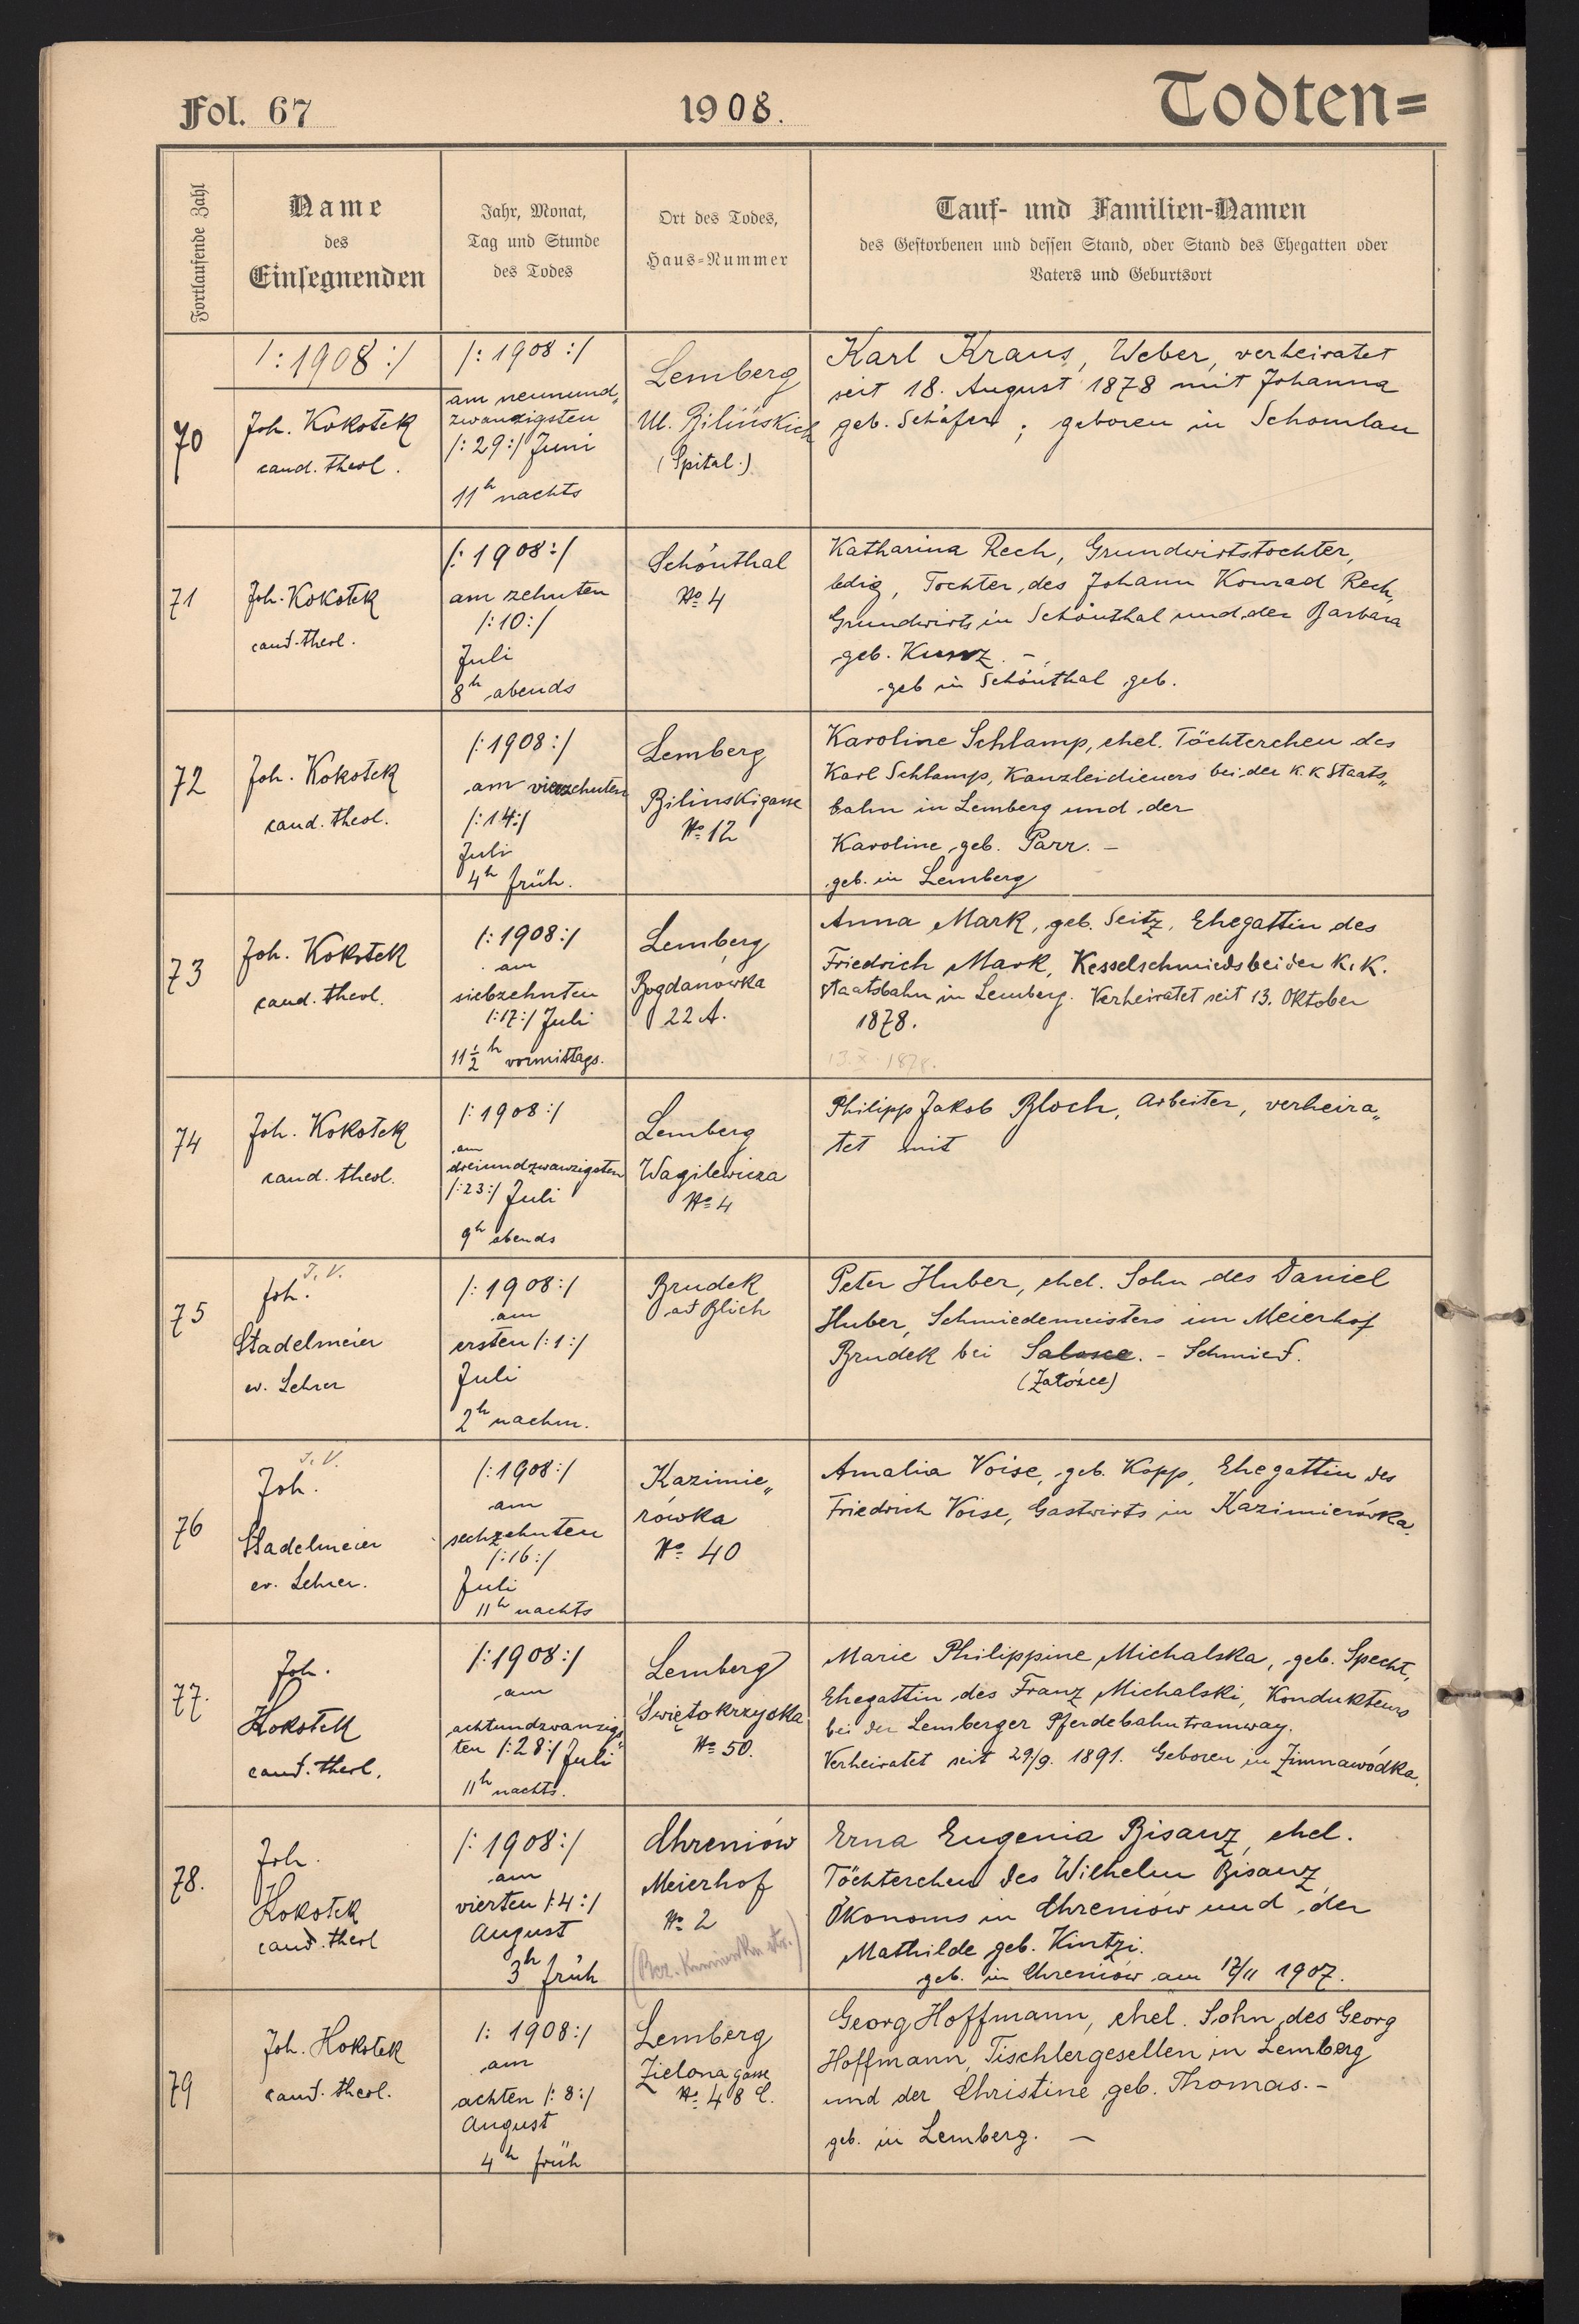 Fol. 67
1908.
Todten=
Fortlaufende Zahl
Name
des
Einsegnenden
Jahr, Monat,
Tag und Stunde
des Todes
Ort des Todes,
Haus=Nummer
Tauf- und Familien-Namen
des Gestorbenen und dessen Stand, oder Stand des Ehegatten oder
Vaters und Geburtsort
70
/: 1908 :/
Joh. Kokotek
cand. theol.
/: 1908 :/
am neunund„
zwanzigsten
/: 29 :/ Juni
11h nachts
Lemberg
Ul. Bilińskich
(Spital.)
Karl Kraus, Weber, verheiratet
seit 18. August 1878 mit Johanna
geb. Schäfer ; geboren in Schomlau
71
Joh. Kokotek
cand. theol.
/: 1908 :/
am zehnten
/: 10 :/
Juli
8h abends
Schönthal
No 4
Katharina Rech, Grundwirtstochter,
ledig, Tochter des Johann Konrad Rech,
Grundwirts in Schönthal und der Barbara
geb. Kunz. –
geb in Schönthal geb.
72
Joh. Kokotek
cand. theol.
/: 1908 :/
am vierzehnten
/: 14 :/
Juli
4h früh.
Lemberg
Bilinskigasse
No 12
Karoline Schlamp, ehel. Töchterchen des
Karl Schlamp, Kanzleidieners bei der K. K Staats„
bahn in Lemberg und der
Karoline, geb. Parr. –
geb. in Lemberg
73
Joh. Kokotek
cand. theol.
/: 1908 :/
am
siebzehnten
/: 17 :/ Juli
11 1/2 h vormittags.
Lemberg
Bogdanówka
22 A.
Anna Mark, geb. Seitz, Ehegattin des
Friedrich Mark, Kesselschmieds bei der K. K.
Staatsbahn in Lemberg. Verheiratet seit 13. Oktober
1878.
13. X. 1878.
74
Joh. Kokotek
cand. theol.
/: 1908 :/
am
dreiundzwanzigsten
/: 23 :/ Juli
9h abends
Lemberg
Wagilewicza
No 4
Philipp Jakob Bloch, Arbeiter, verheira„
tet mit
75
I. V.
Joh.
Stadelmeier
ev. Lehrer
/: 1908 :/
am
ersten /: 1 :/
Juli
2h nachm.
Brudek
ad Blich
Peter Huber, ehel. Sohn des Daniel
Huber, Schmiedemeisters im Meierhof
Brudek bei Salosce. – Schmied.
(Załośce)
76
I. V.
Joh.
Stadelmeier
ev. Lehrer.
/: 1908 :/
am
sechzehnten
/: 16 :/
Juli
11h nachts
Kazimie„
rówka
No 40
Amalia Voise, geb. Kopp, Ehegattin des
Friedrich Voise, Gastwirts in Kazimierówka.
77.
Joh.
Kokotek
cand. theol.
/: 1908 :/
am
achtundzwanzigs„
ten /: 28 :/ Juli
11h nachts.
Lemberg
Świętokrzyska
No 50.
Marie Philippine Michalska, geb. Specht,
Ehegattin des Franz Michalski, Kondukteurs
bei der Lemberger Pferdebahntramway.
Verheiratet seit 29/9. 1891. Geboren in Zimnawódka.
78.
Joh.
Kokotek
cand. theol
/: 1908 :/
am
vierten /: 4 :/
August
3h früh
Chreniów
Meierhof
No 2
Erna Eugenia Bisanz, ehel.
Töchterchen des Wilhelm Bisanz,
Ökonoms in Chreniów und der
Mathilde geb. Kintzi.
geb. in Chreniów am 17/11 1907.
79
Joh. Kokotek
cand. theol.
/: 1908 :/
am
achten /: 8 :/
August
4h früh
Lemberg
Zielona gasse
No 48 C.
Georg Hoffmann, ehel. Sohn des Georg
Hoffmann, Tischlergesellen in Lemberg
und der Christine geb. Thomas. –
geb. in Lemberg. –